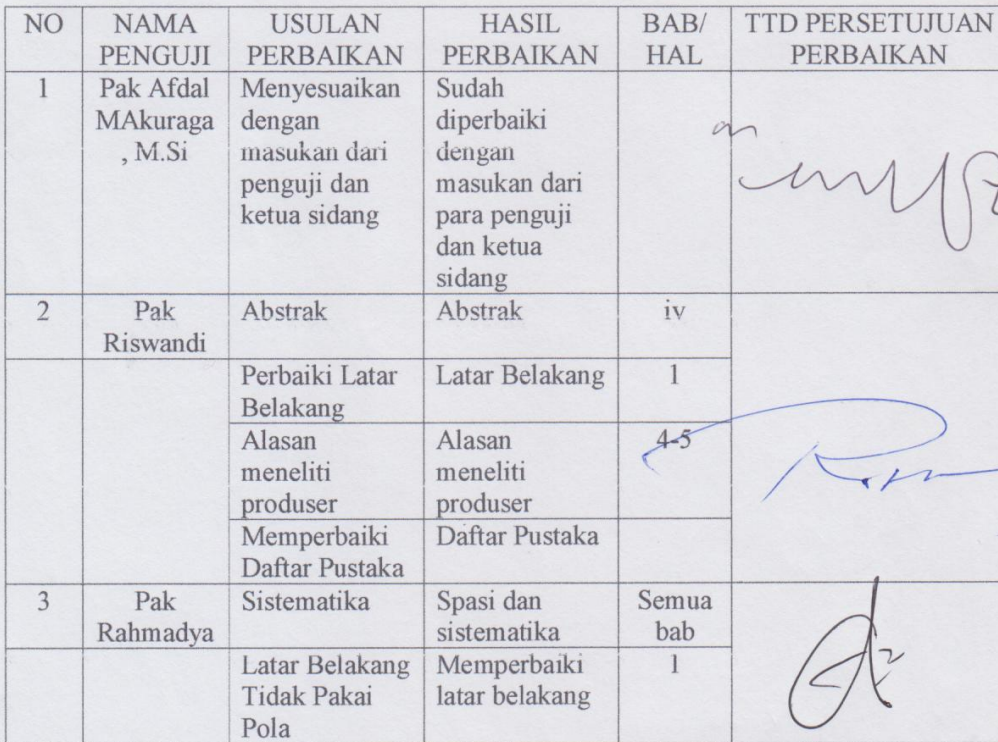 NO NAMA PENGUJI USULAN PERBAIKAN HASIL PERBAIKAN BAB/ HAL TTD PERSETUJUAN PERBAIKAN
1
Pak Afdal
MAkuraga
, M.Si
Menyesuaikan
dengan
masukan dari
penguji dan
ketua sidang
Sudah
diperbaiki
dengan
masukan dari
para penguji
dan ketua
sidang
2
Pak
Riswandi
Abstrak
Abstrak
iv
Perbaiki Latar
Belakang
Latar Belakang
1
Alasan
meneliti
produser
Alasan
meneliti
produser
4-5
Memperbaiki
Daftar Pustaka
Daftar Pustaka
3
Pak
Rahmadya
Sistematika
Spasi dan
sistematika
Semua
bab
Latar Belakang
Tidak Pakai
Pola
Memperbaiki
latar belakang
1